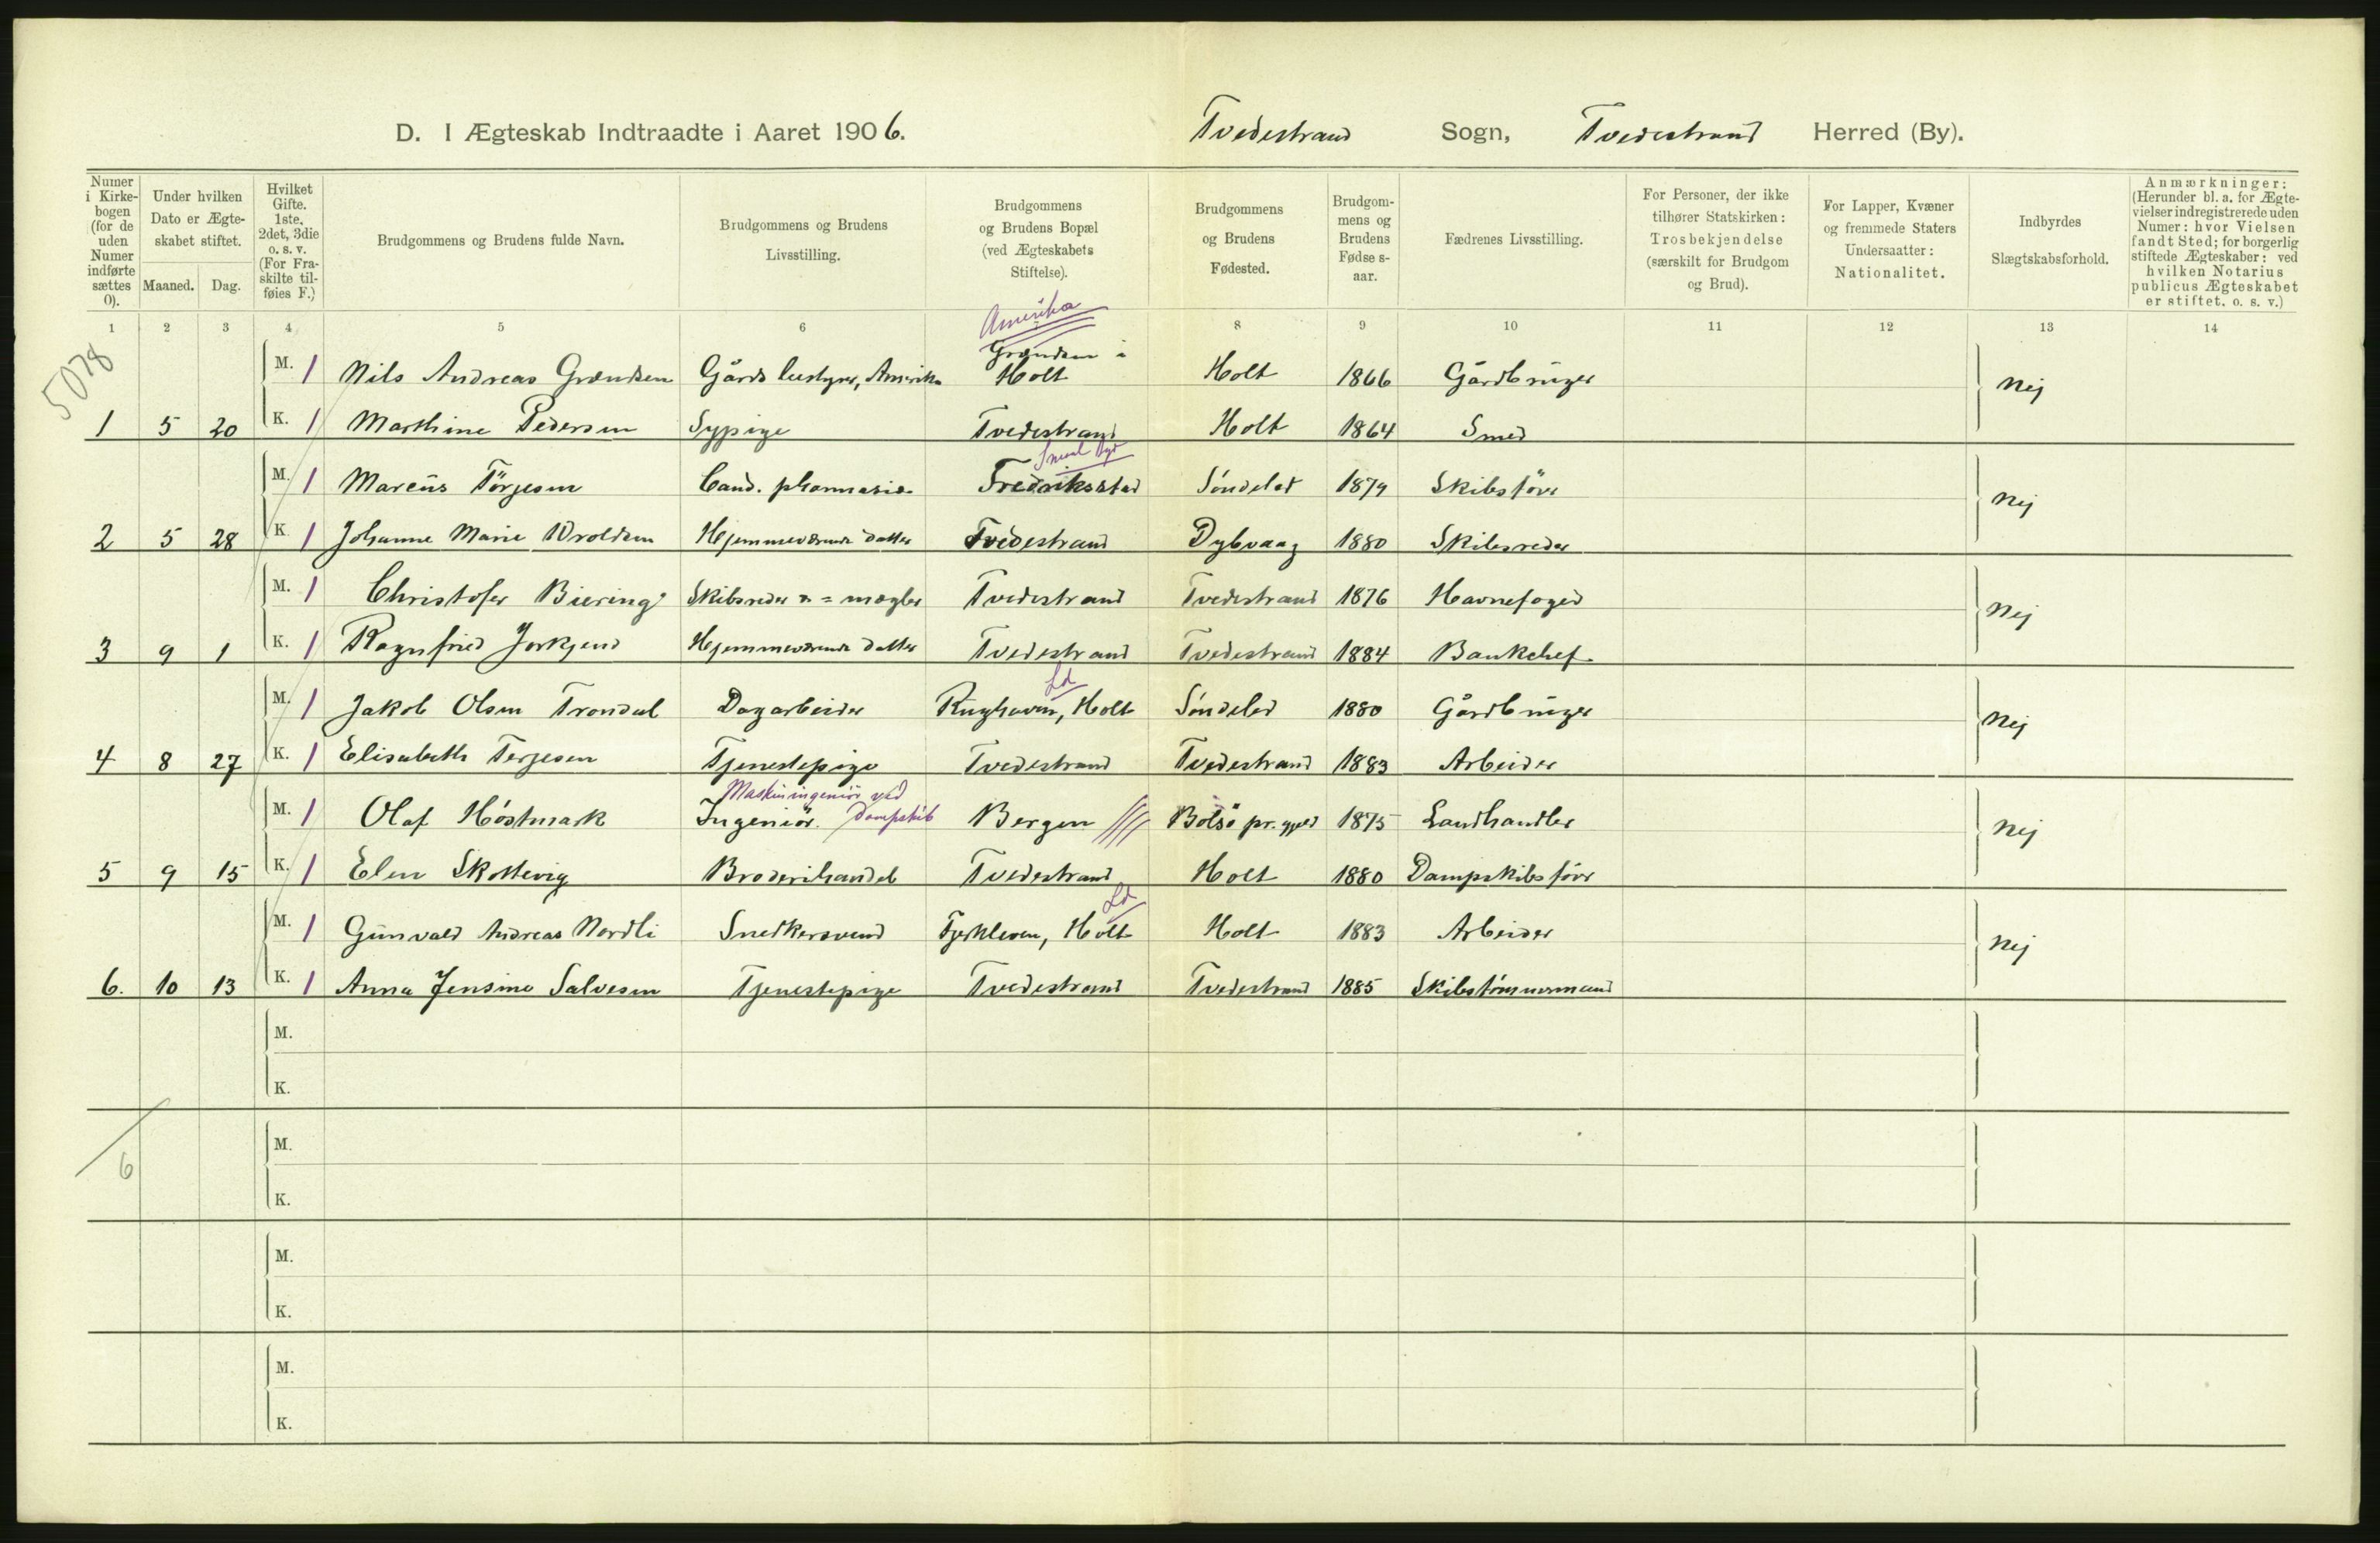 D. I Ægteskab Indtraadte i Aaret 1906. Tvedestrand Sogn, Tvedestrand Herred (By).
Numer i Kirkebogen (for de uden Numer indførte sættes 0).
Under hvilken Dato er Ægteskabet stiftet.
Maaned. Dag.
Hvilket Gifte. 1ste, 2det, 3die o. s. v. (For Fraskilte tilføies F.)
Brudgommens og Brudens fulde Navn.
Brudgommens og Brudens Livsstilling.
Brudgommens og Brudens Bopæl (ved Ægteskabets Stiftelse).
Brudgommens og Brudens Fødested.
Brudgommens og Brudens Fødselsaar.
Fædrenes Livsstilling.
For Personer, der ikke tilhører Statskirken: Trosbekjendelse (særskilt for Brudgom og Brud).
For Lapper, Kvæner og fremmede Staters Undersaatter: Nationalitet.
Indbyrdes Slægtskabsforhold.
Anmærkninger: (Herunder bl. a. for Ægtevielser indregistrerede uden Numer: hvor Vielsen fandt Sted; for borgerlig stiftede Ægteskaber: ved hvilken Notarius publicus Ægteskabet er stiftet. o. s. v.)
1 2 3 4 5 6 8 9 10 11 12 13 14
5078
Amerika
M. 1 Nils Andreas Grændsen Gårdsbestyrer, Amerika Grændsen i Holt Holt 1866 Gårdbruger Nej
1 5 20 K. 1 Marthine Pedersen Sypige Tvedestrand Holt 1864 Smed
M. 1 Marcus Törjesen Cand. pharmasie Fredriksstad Söndeled 1879 Skibsförer Nej
2 5 28 K. 1 Johanne Marie Wroldsen Hjemmeværende datter Tvedestrand Dybvaag 1880 Skibsreder
M. 1 Christofer Biering Skibsreder & = mægler Tvedestrand Tvedestrand 1876 Havnefoged Nej
3 9 1 K. 1 Ragnfried Jorkjend Hjemmeværende datter Tvedestrand Tvedestrand 1884 Bankchef
Ld
M. 1 Jakob Olsen Trondal Dagarbeider Holt Söndeled 1880 Gårdbruger Nej
4 8 27 K. 1 Elisabeth Terjesen Tjenestepige Tvedestrand Tvedestrand 1883 Arbeider
Maskiningeniör ved Dampskib
M. 1 Olaf Höstmark Ingeniör. Bergen Bolsö pr. 1875 Landhandler Nej
5 9 15 K. 1 Elen Skottevig Broderihandel Tvedestrand Holt 1880 Dampskibsförer
Ld
M. 1 Gunvald Andreas Nordli Snedkersvend Fjerkleven, Holt Holt 1883 Arbeider Nej
6. 10 13 K. 1 Anna Jensine Salvesen Tjenestepige Tvedestrand Tvedestrand 1885 Skibstömmermand
M.
K.
6
M.
K.
M.
K.
M.
K.